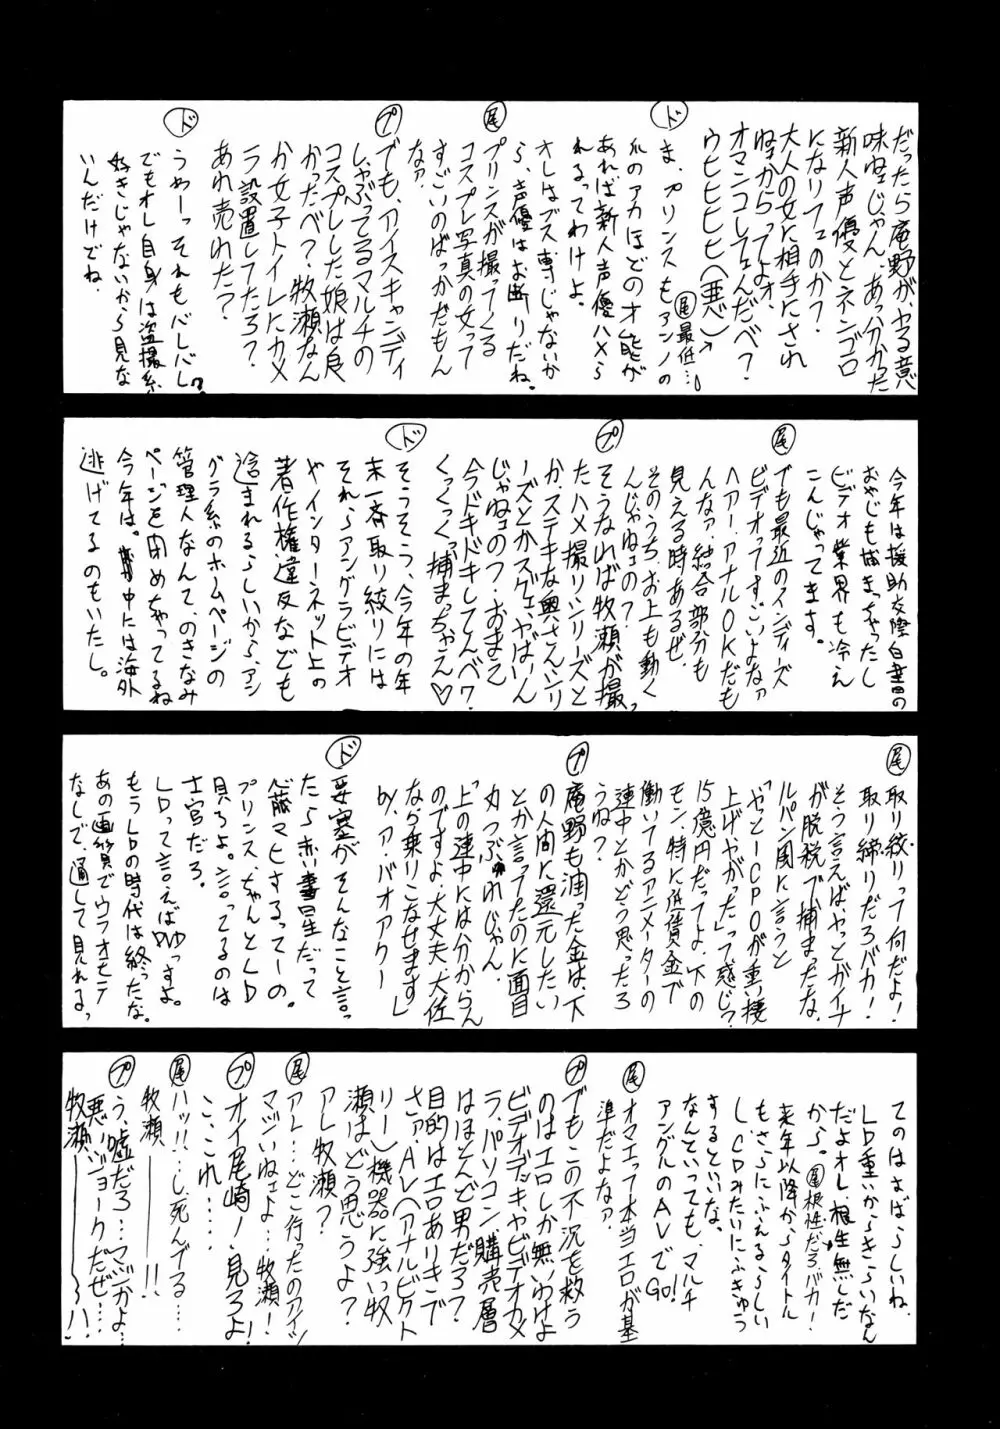 だったら庵野が、ヤる意
味ねェじゃん、あっかかった
新人声優とネンゴロ
になりてェのか?
大人の女に相手にされ
ねェからってよォ、
オマンコしてェんだべ?
ウヒヒヒヒヒ(悪)
尾 最低…
ド ま、プリンスもアンノの
爪のアカほどの才能が
あれば新人声優ハメら
れるってわけよ。
オレはブス専じゃないか
ら、声優はお断りだね。
尾 プリンスが撮ってくる
コスプレ写真の女って
すごいのばっかだもん
なァ、
プ でも、アイスキャンディ
しゃぶってるマルチの
コスプレした娘は良
かったべ?牧瀬なん
か女子トイレにカメ
ラ設置してたろ?
あれ売れた?
ド うわーっそれもバレバレ?
でもオレ自身は盗撮系
好きじゃないから見な
いんだけどね、
今年は援助交際白書の
おやじも捕まっちゃったし
ビデオ業界も冷え
こんじゃってます。
尾 でも最近のインディーズ
ビデオってすごいよなァ
ヘアー・アナルOKだも
んなァ、結合部分も
見える時あるぜ、
そのうちお上も動く
んじゃねェの?
プ そうなれば牧瀬が撮っ
たハメ撮りシリーズと
か、ステキな奥さんシリ
ーズとかスゲェやばいん
じゃねェの?おまえ
今ドキドキしてんべ?
くっくっくっ捕まっちゃえ♡
ド そうそう、今年の年
末一斉取り絞りには
それらアングラビデオ
やインターネット上の
著作権違反なども
込まれるらしいから、アン
グラ系のホームページの
管理人なんて、のきなみ
ページを閉めちゃってるね
今年は。中には海外
逃げてるのもいたし。
尾 取り絞りって何だよ!
取り締りだろバカ!
そう言えば、やっとガイナ
が脱税で捕まったな、
ルパン風に言うと
「やっとICPOが重い腰
上げやがった」って感じ?
15億円だってよ、下の
モン、特に低賃金で
働いてるアニメーターの
連中とかどう思ったろ
うね?
プ 庵野も浦った金は、下
の人間に還元したい
とか言ってたのに面目
丸つぶれじゃん、
「上の連中にはわからん
のですよ、大丈夫大佐
なら乗りこなせます」
by、ア・バオアクー
ド 要塞がそんなこと言っ
たら赤い彗星だって
心臓マヒするってーの。
プリンス、ちゃんとLD
見ろよ。言ってるのは
士官だろ。
LDって言えばDVDっすよ。
もうLDの時代は終ったな。
あの画質でウラオモテ
なしで、通しで見れるっ
てのはすばらしいね、
LD重いからきらいなん
だよオレ、根性無しだ
から。尾 根性だろ、バカ!
来年以降からタイトル
もさらにふえるらしい
し、CDみたいにふきゅう
するといいな。
なんといっても、マルチ
アングルのAVでGO!
尾 オマエって本当エロが基
準だよなァ、
プ でもこの不況を救う
のはエロしか無いわけよ
ビデオデッキ、やビデオカメ
ラ、パソコン、購売層
はほとんど男だろ?
目的はエロありきで
さァ・AV(アナルビクト
リー)機器に強い牧
瀬はどう思うよ?
アレ牧瀬?
尾 アレ…どこ行ったのアイツ
マジいねェよ…牧瀬!
プ オイ尾崎ノ見ろよ!
こ、これ……
尾 ハッ!!…し、死んでる…
牧瀬―――!!
プ う、嘘だろ…マジかよ…
悪いジョークだぜ…
牧瀬―――ハ!